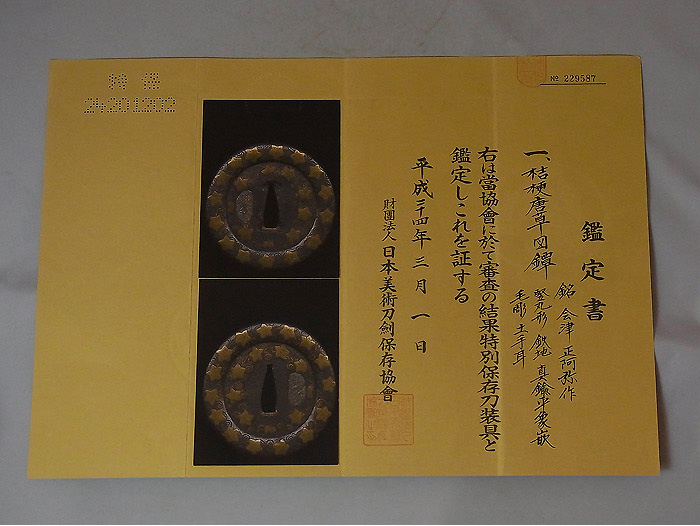 № 229587
鑑定書
一、桔梗唐草図鐔
銘 会津 正阿弥作
竪丸形 鉄地 真鍮平象嵌
毛彫 土手耳
右は當協會に於て審査の結果特別保存刀装具と
鑑定しこれを証する
平成二十四年三月一日
財團法人 日本美術刀劍保存協會
24201302